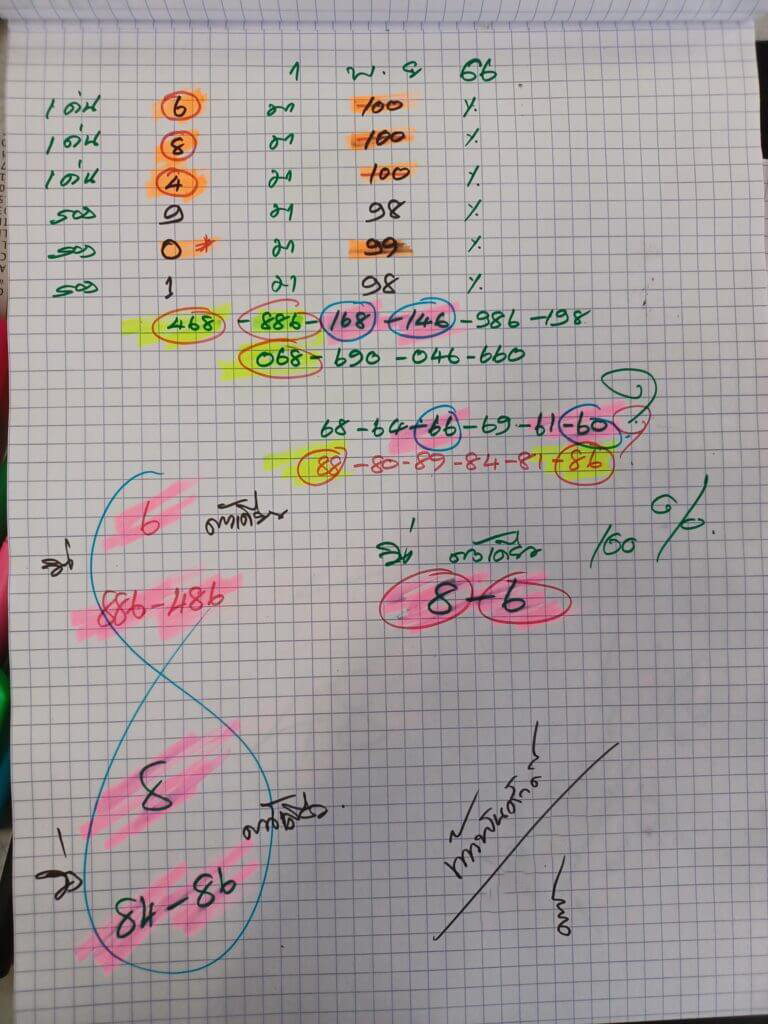 1 พ.ย 66
1 เด่น 6 มา 100 %
1 เด่น 8 มา 100 %
1 เด่น 4 มา 100 %
รอง 9 มา 98 %
รอง 0 * มา 99 %
รอง 1 มา 98 %
468 - 886 - 168 - 146 - 986 - 198
068 - 690 - 046 - 660
68 - 64 - 66 - 69 - 61 - 60
88 - 80 - 89 - 84 - 81 - 86
6 ตัวเดียว
886 - 486
ตัวเดียว 100 %
8 - 6
8
ตัวเดียว
84 - 86